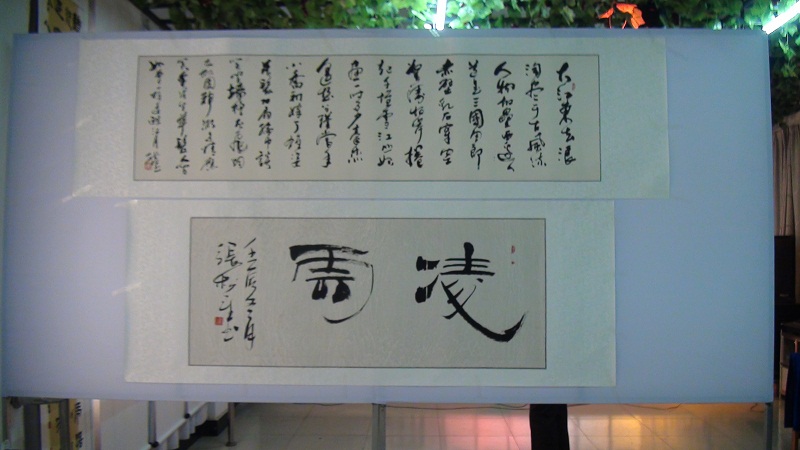 大江東去浪
淘盡千古風流
人物故壘西邊人
道是三國周郎
赤壁亂石穿空
驚濤拍岸捲
起千堆雪江山如
畫一時多少豪杰
遙想公瑾當年
小喬初嫁了雄姿
英發羽扇綸巾談
笑間檣櫓灰飛煙
滅故國神游多情應
笑我早生華髮人間
如夢一尊還酹江月
凌周
壬辰
張